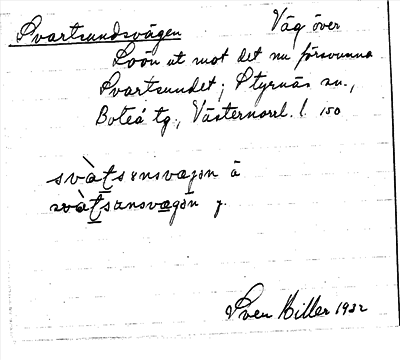 Svartsundsvägen Väg över
Loön ut mot det nu försvunna
Svartsundet; Styrnäs sn.,
Boteå tg., Västernorrl. l. 150
svàtsunsvægən ä
svàtsansvægən y.
Sven Hiller 1932